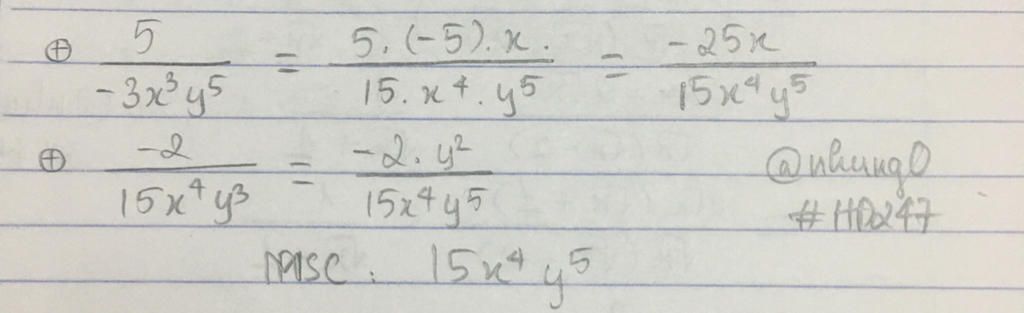 ⊕ 5/(-3x³y⁵) = (5.(-5).x.)/(15.x⁴.y⁵) = (-25x)/(15x⁴y⁵)
⊕ (-2)/(15x⁴y³) = (-2.y²)/(15x⁴y⁵)
@nhung0
#HD247
MSC: 15x⁴y⁵